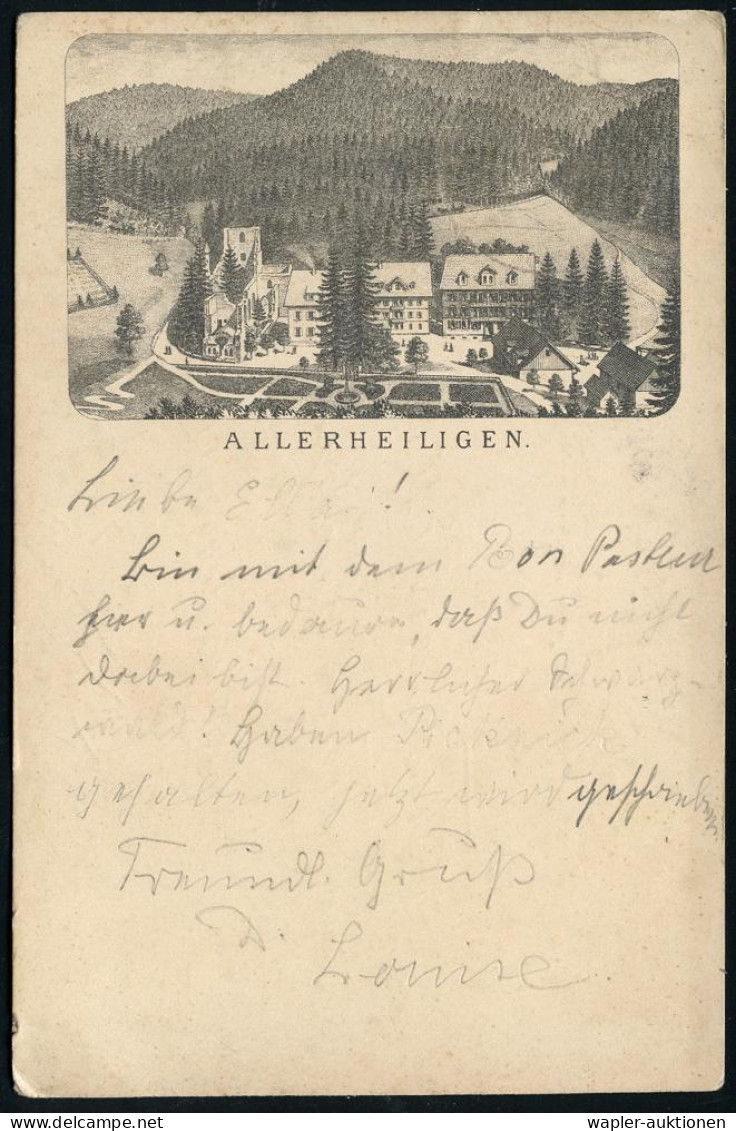 ALLERHEILIGEN.
Liebe Ella!
Bin mit dem Bon Pasteur
hier u. bedaure, daß Du nicht
dabei bist. Herrlicher Schwarz-
wald! Haben Picknick
gehalten, jetzt wird geschrieben
Freundl. Gruß
D.
Louise.
wapler-auktionen